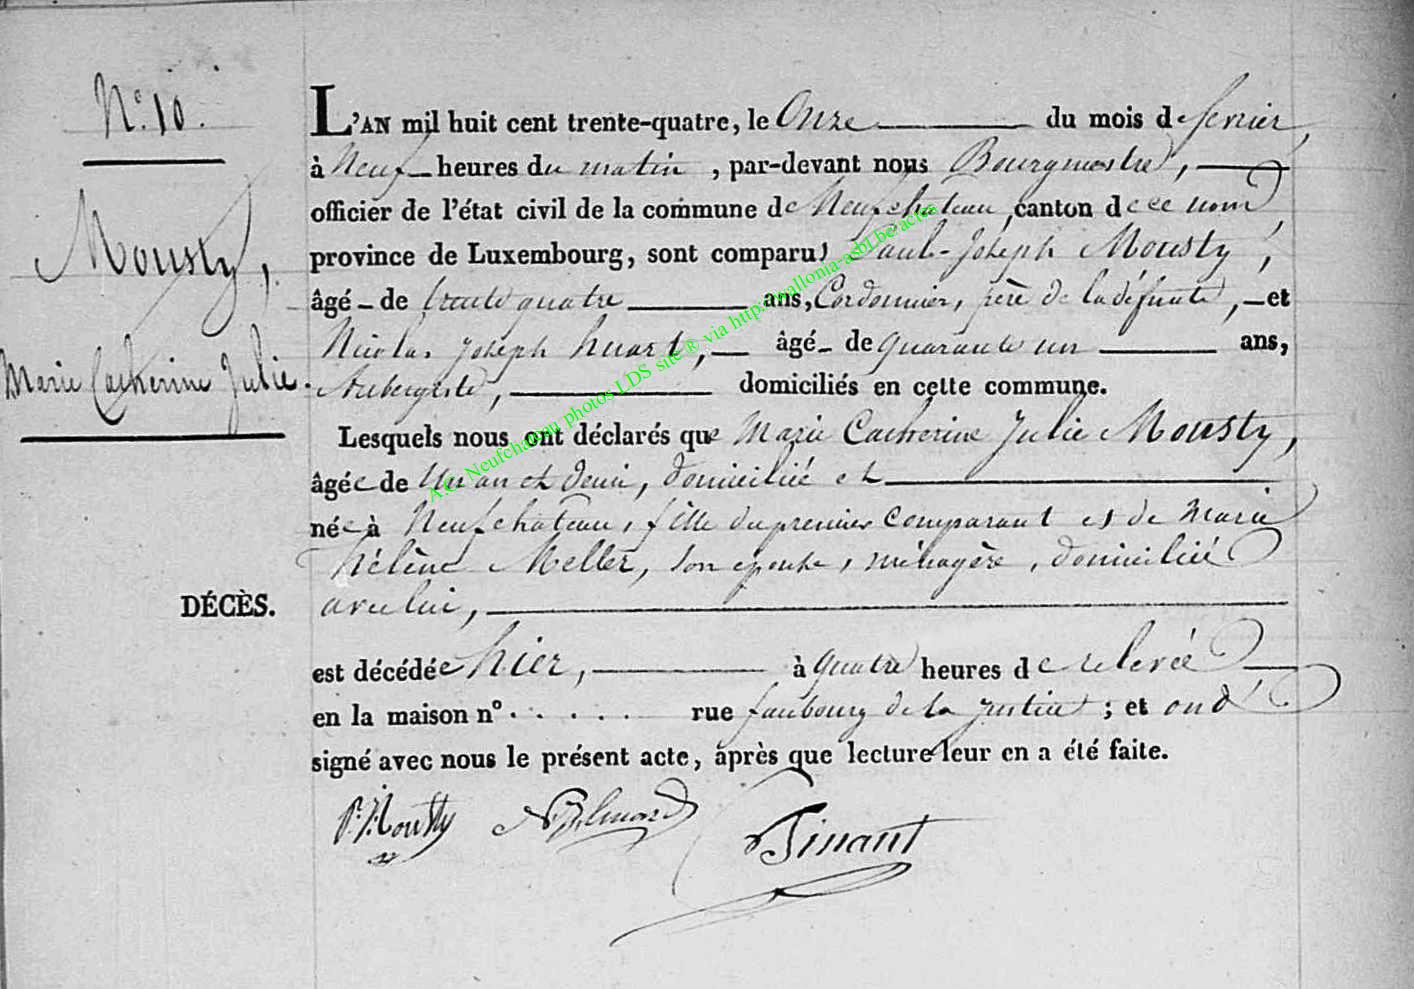 N.° 10.
Mousty,
Marie Catherine Julie.
DÉCÈS.
L'AN mil huit cent trente-quatre, le Onze du mois de fevrier,
à Neuf heures du matin, par-devant nous Bourgmestre,
officier de l'état civil de la commune de Neufchateau, canton de ce nom,
province de Luxembourg, sont comparus Paul-Joseph Mousty,
âgé de trente quatre ans, Cordonnier, père de la défunte, et
Nicolas Joseph huart, âgé de quarante un ans,
Aubergiste, domiciliés en cette commune.
Lesquels nous ont déclarés que Marie Catherine Julie Mousty,
âgée de Un an et demi, domiciliée et
née à Neufchateau, fille du premier comparant et de Marie
hélène Meller, son epouse, ménagère, domiciliée
avec lui,
est décédée hier, à quatre heures de relevée
en la maison n° . . . . . rue faubourg de la justice ; et ont
signé avec nous le présent acte, après que lecture leur en a été faite.
P. J. Mousty Tinant
A.C. Neufchateau photos LDS site® via http://wallonia-asbl.be/actes